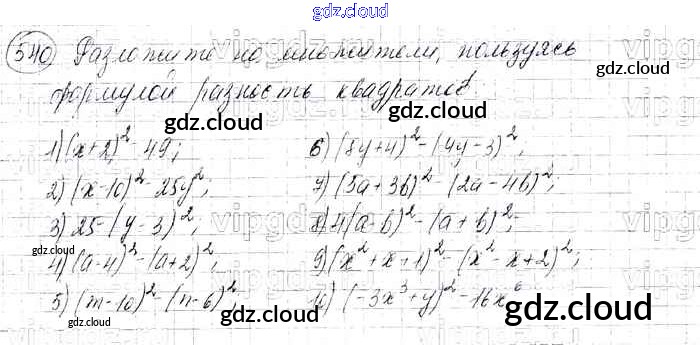 gdz.cloud
540) Разложите на множители, пользуясь
gdz.cloud
формулой разность квадратов.
gdz.cloud
gdz.cloud
1) (x+2)² - 49;
2) (x-10)² - 25y²;
3) 25-(y-3)²;
4) (a-4)² - (a+2)²;
5) (m-10)² - (n-6)²;
6) (8y+4)² - (4y-3)²;
7) (5a+3b)² - (2a-4b)²;
8) 4(a-b)² - (a+b)²;
9) (x²+x+1)² - (x²-x+2)²;
10) (-3x³+y)² - 16x⁶
gdz.cloud
gdz.cloud
gdz.cloud
gdz.cloud
gdz.cloud
gdz.cloud